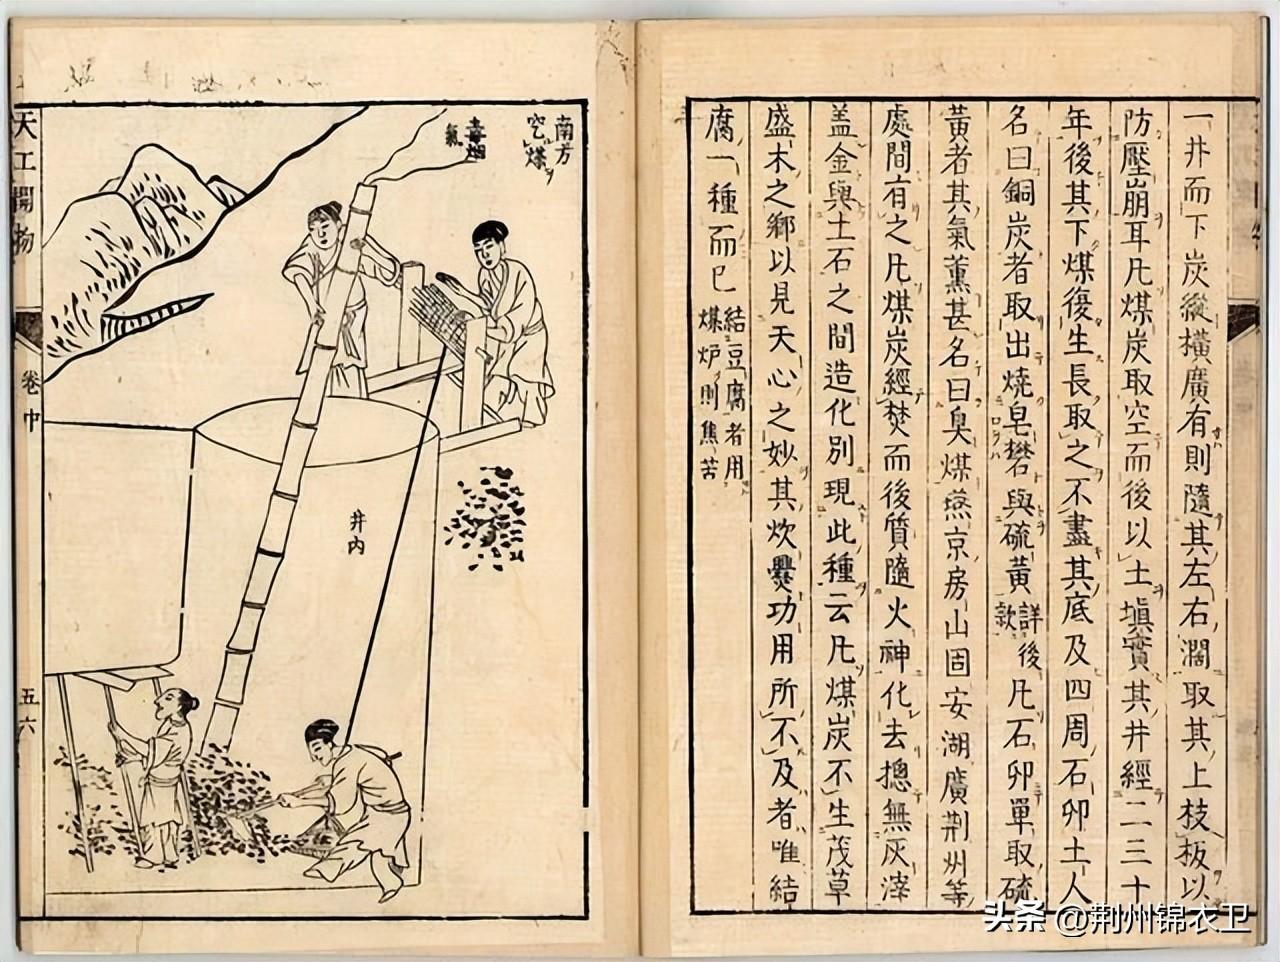 一井而下炭縱橫廣有則隨其左右濶取其上枝板以
防壓崩耳凡煤炭取空而後以土塡實其井經二三十
年後其下煤復生長取之不盡其底及四周石卯土人
名曰銅炭者取出燒皂礬與硫黃詳後款凡石卯單取硫
黃者其氣薰甚名曰臭煤燕京房山固安湖廣荆州等
處間有之凡煤炭經焚而後質隨火神化去摠無灰滓
盖金與土石之間造化別現此種云凡煤炭不生茂草
盛木之鄉以見天心之妙其炊爨功用所不及者唯結
腐一種而已結豆腐者用
煤炉則焦苦
南方
穵煤
毒烟
氣
井内
天工開物
卷中
五六
头条 @荆州锦衣卫